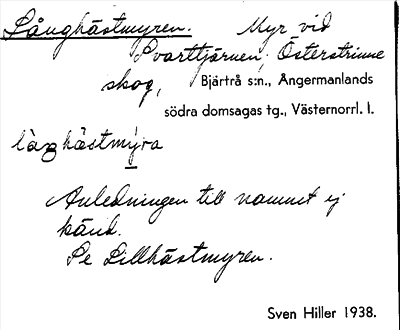 Långhästmyren. Myr vid
Svarttjärnen, Österstrinne
skog, Bjärtrå s:n., Ångermanlands
södra domsagas tg., Västernorrl. l.
làŋhästmy̱ra
Anledningen till namnet ej
känd.
Se Lillhästmyren.
Sven Hiller 1938.